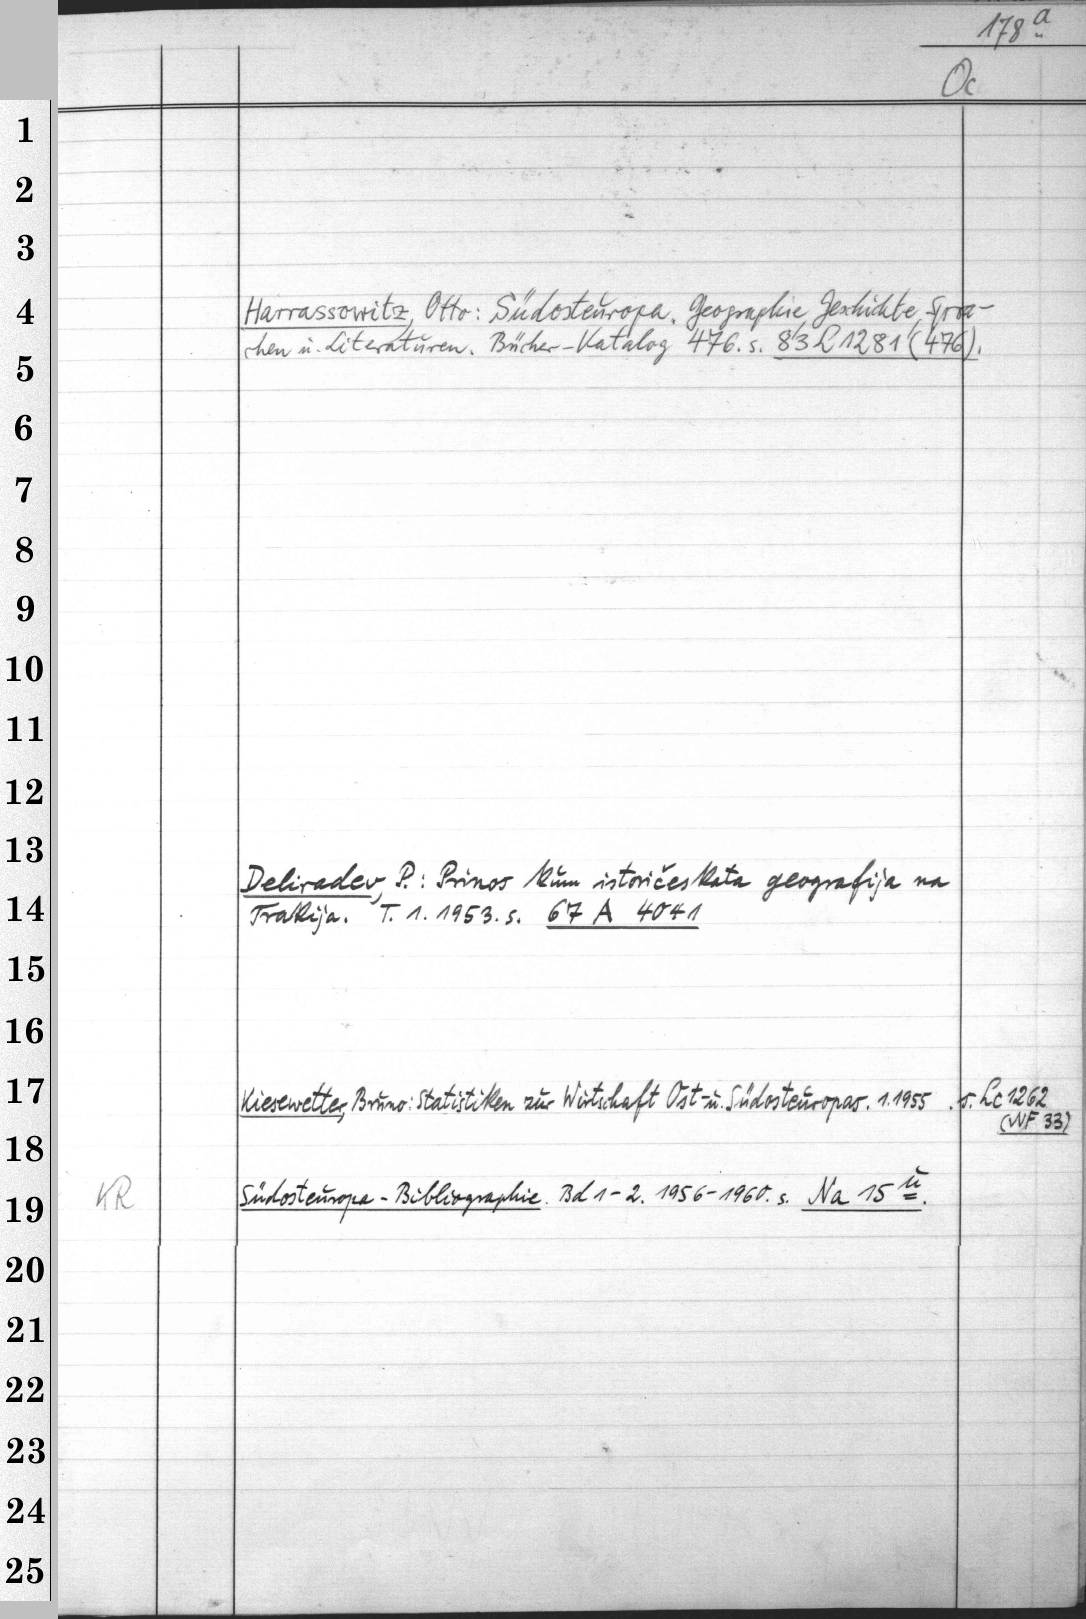 178 a
Oc
1
2
3
4
Harrassowitz, Otto: Südosteuropa. Geographie, Geschichte, Spra-
chen u. Literaturen. Bücher-Katalog 476. s. 83 L 1281 (476).
5
6
7
8
9
10
11
12
13
Deliradev, P.: Prinos kŭm istoričeskata geografija na
14
Trakija. T. 1. 1953. s. 67 A 4041
15
16
17
Kiesewetter, Bruno: Statistiken zur Wirtschaft Ost- u. Südosteuropas. 1.1955. s. Lc 1262
(NF 33)
18
KR Südosteuropa-Bibliographie. Bd 1-2. 1956-1960. s. Na 15 ü.
19
20
21
22
23
24
25